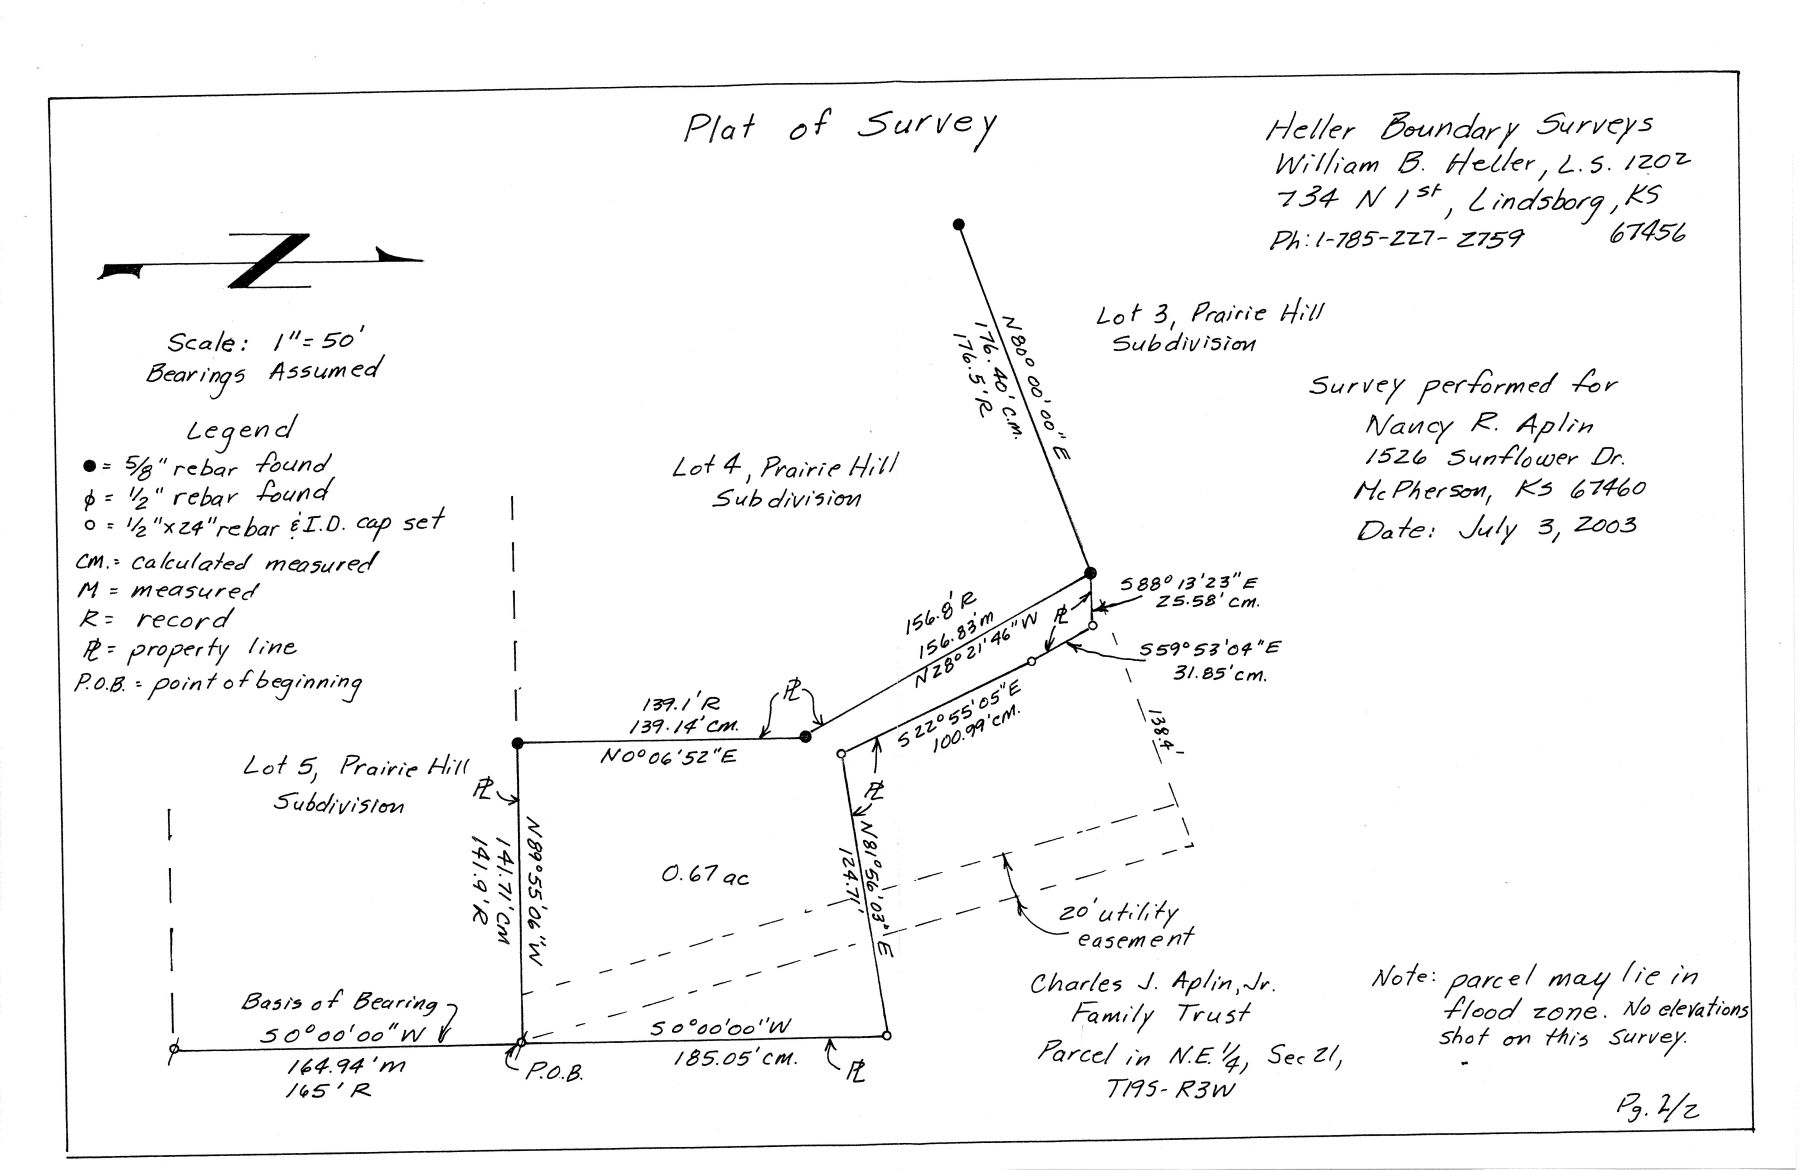 Plat of Survey
Heller Boundary Surveys
William B. Heller, L.S. 1202
734 N 1st, Lindsborg, KS
67456
Ph: 1-785-227-2759
N
Scale: 1"=50'
Bearings Assumed
Legend
● = 5/8" rebar found
ϕ = 1/2" rebar found
o = 1/2"x24" rebar & I.D. cap set
CM.= calculated measured
M = measured
R = record
PL = property line
P.O.B. = point of beginning
Lot 3, Prairie Hill
Subdivision
N80°00'00"E
176.40' C.M.
176.5' R
Survey performed for
Nancy R. Aplin
1526 Sunflower Dr.
McPherson, KS 67460
Date: July 3, 2003
Lot 4, Prairie Hill
Subdivision
S88°13'23"E
25.58' cm.
156.8' R
156.83'm
N28°21'46"W
PL
S59°53'04"E
31.85' cm.
S22°55'05"E
100.99' cm.
138.4'
139.1' R
139.14' cm.
N0°06'52"E
PL
Lot 5, Prairie Hill
Subdivision
PL
N89°55'06"W
141.71' CM
141.9' R
PL
N81°56'03"E
124.71'
0.67 ac
20' utility
easement
Basis of Bearing
S0°00'00"W
164.94'm
165' R
P.O.B.
S0°00'00"W
185.05' cm.
PL
Charles J. Aplin, Jr.
Family Trust
Parcel in N.E. 1/4, Sec 21,
T19S-R3W
Note: parcel may lie in
flood zone. No elevations
shot on this survey.
Pg. 2/2